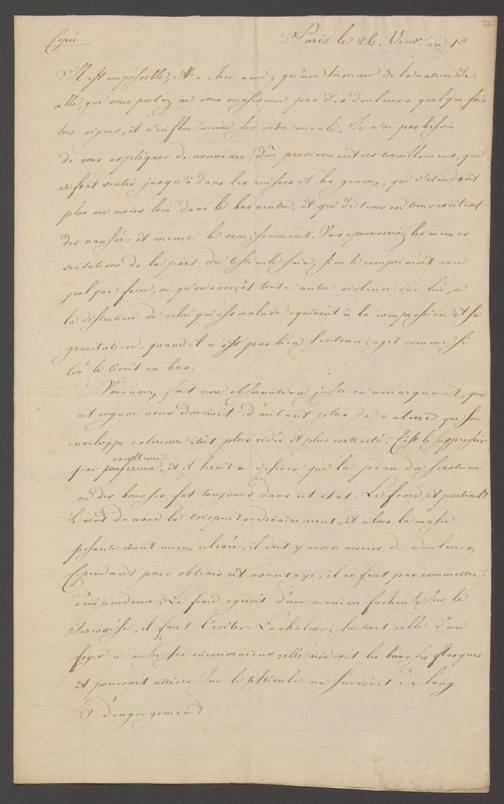 Copie
Paris le 26 Vent. an 10
Il est impossible, mon cher ami, qu'une tumeur de la nature de
celle, que vous portez ne vous occasionne pas des douleurs quelque fois
très aigues, et n'influe même sur votre morale. Je n'ai pas besoin
de vous expliquer de nouveau, d'où proviennent ces tiraillemens, qui
se font sentir jusqu'à dans les cuisses et les genoux, qui s'étendent
plus ou moins loin dans le bas ventre, et qui de tems en tems excitent
des nausées et même le vomissement. Vous éprouveriez les mêmes
sensations de la part du testicule sain, si on le comprimoit avec
quelque force, ou qu'on exerçât toute autre violence sur lui, or
la distention de celui qui est malade equivaut à la compression et sa
gravitation, quand il n'est pas bien soutenu, agit comme si
on le tiroit en bas.
Vous avez fait une observation juste en remarquant, que
cet organe vous donnoit d'autant plus de calme que son
enveloppe exterieure étoit plus ridée et plus contractée. C'est le suspensoir
par excellence, et il seroit à desirer que la peau du scrotum
ou des bourses fut toujours dans cet état. Le froid et particult
le vent du nord la crispent ordinairement, et alors la masse
pesante étant mieux relevée, il doit y avoir moins de douleurs.
Cependant pour obtenir cet avantage, il ne faut pas commettre
d'imprudence. Le froid agiroit d'une maniere facheuse sur le
, il faut l'éviter. La chaleur, surtout celle d'un
foyer a aussi ses inconveniens, elle rendroit les bourses flasques
et pourroit attirer sur le testicule un surcroit de sang
et d'engorgement.